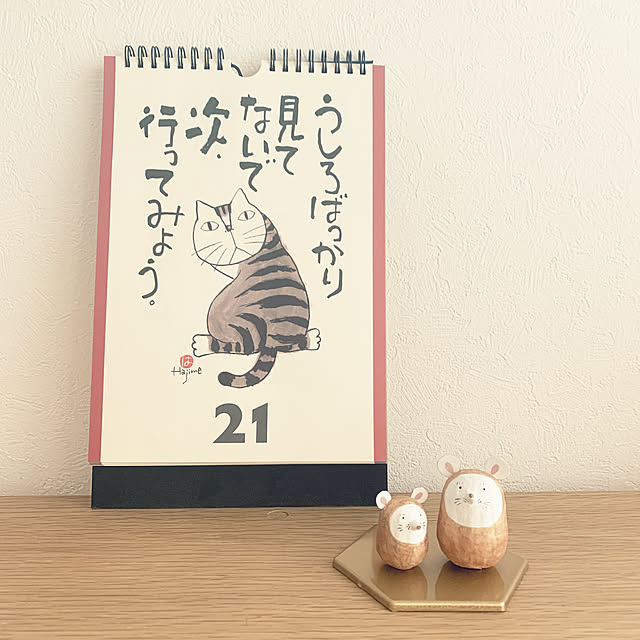 うしろばっかり
見て
ないで
次、
行ってみよう。
は
Hajime
21